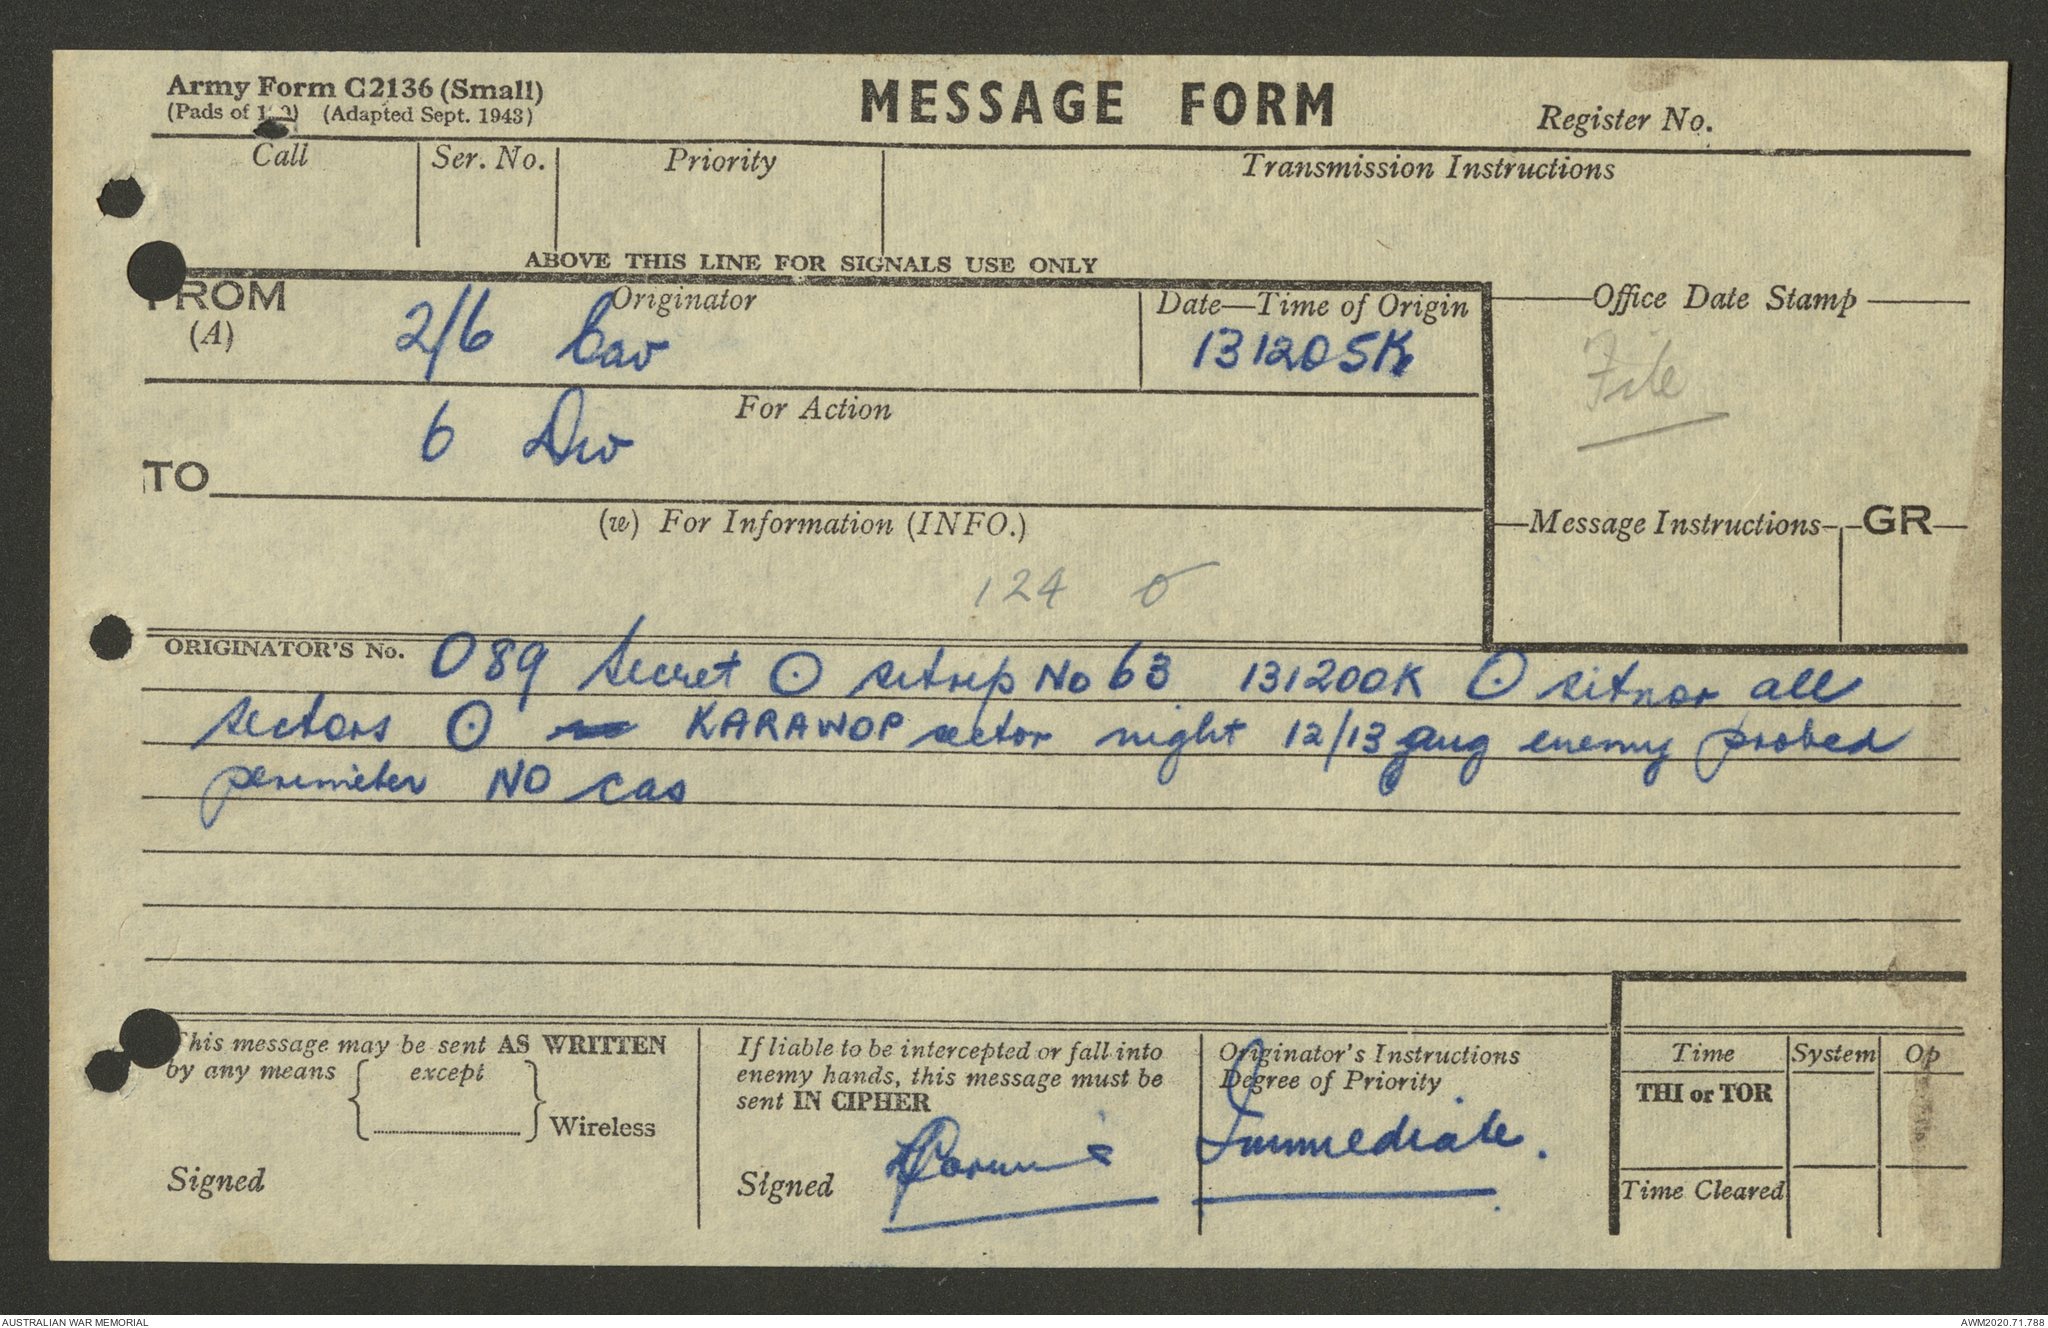 Army Form C2136 (Small)
(Pads of 100) (Adapted Sept. 1943)
MESSAGE FORM
Register No.
Call
Ser. No.
Priority
Transmission Instructions
ABOVE THIS LINE FOR SIGNALS USE ONLY
FROM
(A)
Originator
2/6 Cav
Date—Time of Origin
131205K
Office Date Stamp
File
For Action
6 Div
TO
(w) For Information (INFO.)
Message Instructions
GR
124
ORIGINATOR'S No. 089 Secret O sitrep No 63 131200K O sitnor all
sectors O KARAWOP sector night 12/13 aug enemy probed
perimeter NO cas
This message may be sent AS WRITTEN
by any means except
Wireless
Signed
If liable to be intercepted or fall into
enemy hands, this message must be
sent IN CIPHER
Signed
Originator's Instructions
Degree of Priority
Immediate.
Time System Op
THI or TOR
Time Cleared
AUSTRALIAN WAR MEMORIAL
AWM2020.71.788